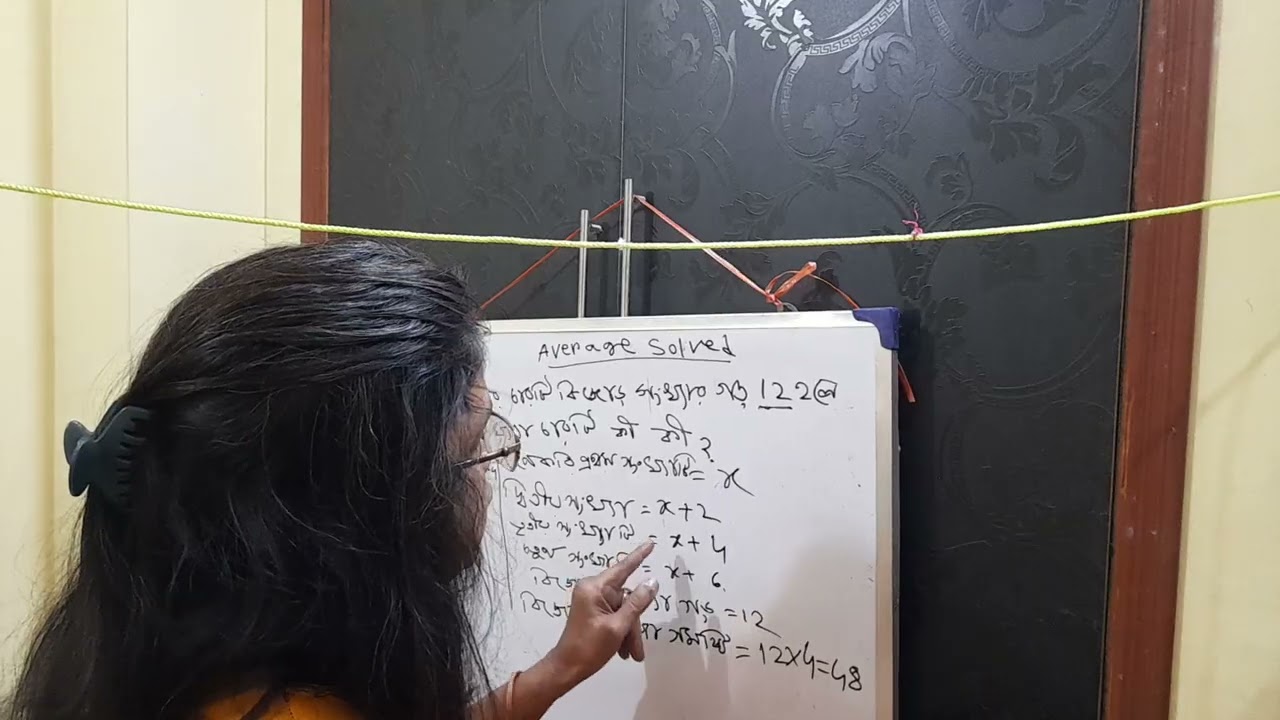 Average Solved
চারটি বিজোড় সংখ্যার গড় 12 2লে
চারটি কী কী ?
প্রথম সংখ্যাটি = x
দ্বিতীয় সংখ্যা = x + 2
তৃতীয় সংখ্যাটি = x + 4
চতুর্থ সংখ্যাটি = x + 6
গড় = 12
সমষ্টি = 12 x 4 = 48